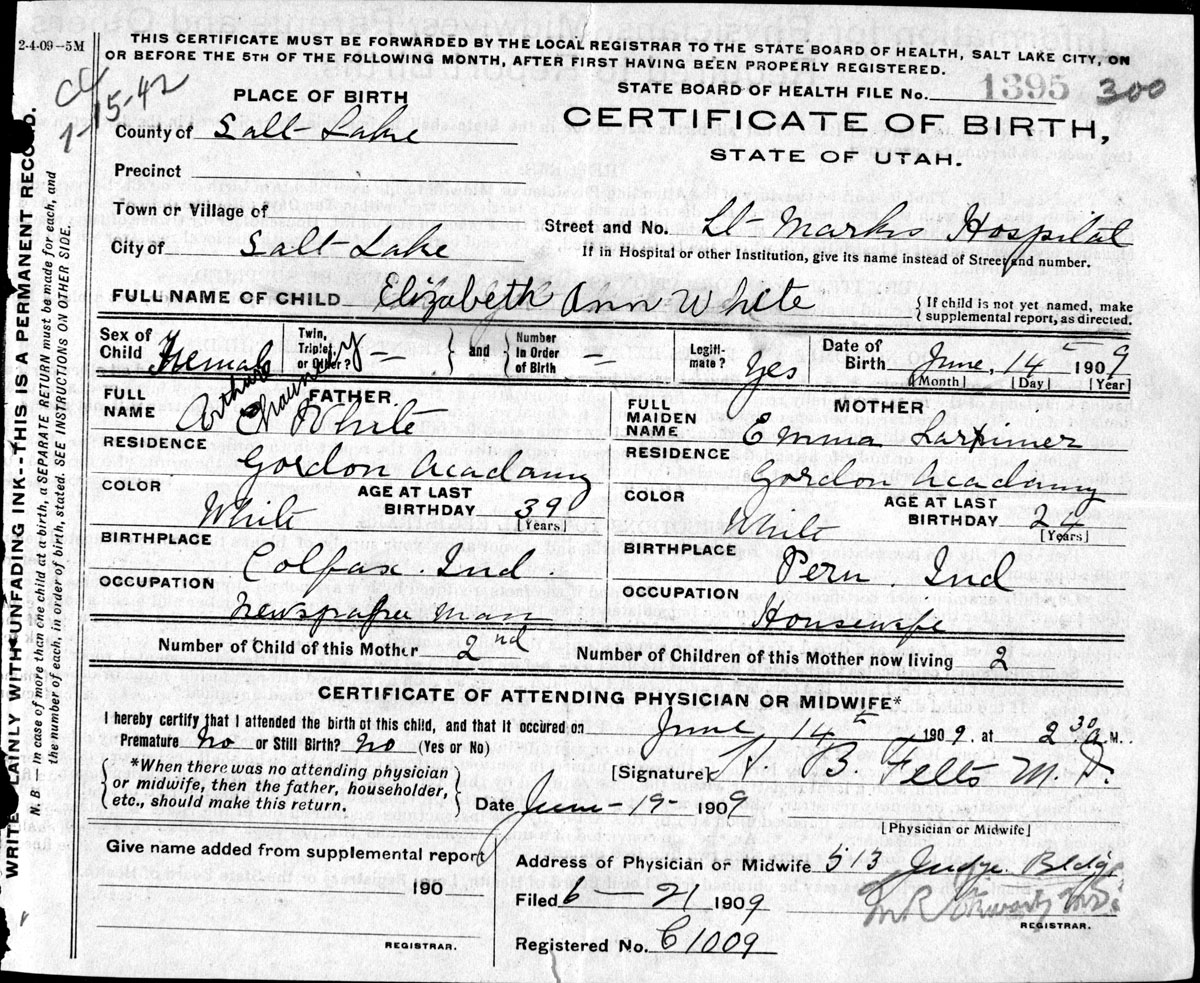 2-4-09--5M
THIS CERTIFICATE MUST BE FORWARDED BY THE LOCAL REGISTRAR TO THE STATE BOARD OF HEALTH, SALT LAKE CITY, ON
OR BEFORE THE 5TH OF THE FOLLOWING MONTH, AFTER FIRST HAVING BEEN PROPERLY REGISTERED.
STATE BOARD OF HEALTH FILE No. 1395 300
1-15-42
PLACE OF BIRTH
CERTIFICATE OF BIRTH,
STATE OF UTAH.
County of Salt Lake
Precinct
Town or Village of
Street and No. St Marks Hospital
City of Salt Lake
If in Hospital or other Institution, give its name instead of Street and number.
FULL NAME OF CHILD Elizabeth Ann White
{ If child is not yet named, make
{ supplemental report, as directed.
Sex of Child Female
Twin, Triplet, or Other? —
} and {
Number in Order of Birth —
Legiti-mate? Yes
Date of Birth June, 14th 1909
[Month] [Day] [Year]
FATHER
FULL NAME Arthur White
RESIDENCE Gordon Acadamy
COLOR White
AGE AT LAST BIRTHDAY 39
[Years]
BIRTHPLACE Colfax. Ind.
OCCUPATION Newspaper man
MOTHER
FULL MAIDEN NAME Emma Larimer
RESIDENCE Gordon Acadamy
COLOR White
AGE AT LAST BIRTHDAY 24
[Years]
BIRTHPLACE Peru. Ind
OCCUPATION Housewife
Number of Child of this Mother 2nd
Number of Children of this Mother now living 2
CERTIFICATE OF ATTENDING PHYSICIAN OR MIDWIFE*
I hereby certify that I attended the birth of this child, and that it occured on June 14th 1909. at 2 30 a M.
Premature No or Still Birth? No (Yes or No)
[Signature] H. B. Felts M.D.
{ *When there was no attending physician }
{ or midwife, then the father, householder, }
{ etc., should make this return. }
Date June-19-1909
[Physician or Midwife]
Give name added from supplemental report
190
REGISTRAR.
Address of Physician or Midwife 513 Judge Bldg.
Filed 6 — 21 1909
REGISTRAR.
Registered No. C1009
WRITE PLAINLY WITH UNFADING INK--THIS IS A PERMANENT RECORD.
N. B — in case of more than one child at a birth, a SEPARATE RETURN must be made for each, and
the number of each, in order of birth, stated. SEE INSTRUCTIONS ON OTHER SIDE.